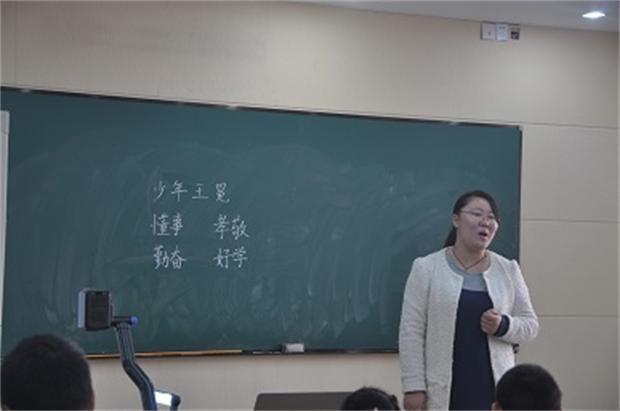 少年王冕
懂事 孝敬
勤奋 好学